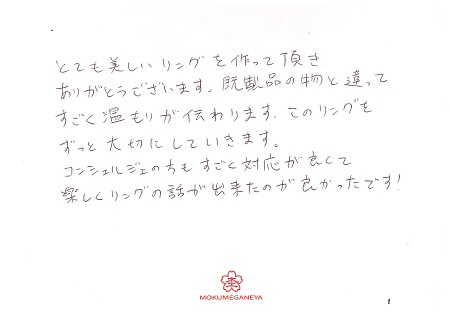 とても美しいリングを作って頂き
ありがとうございます。既製品の物と違って
すごく温もりが伝わります。このリングを
ずっと大切にしていきます。
コンシェルジェの方もすごく対応が良くて
楽しくリングの話が出来たのが良かったです!
MOKUMEGANEYA